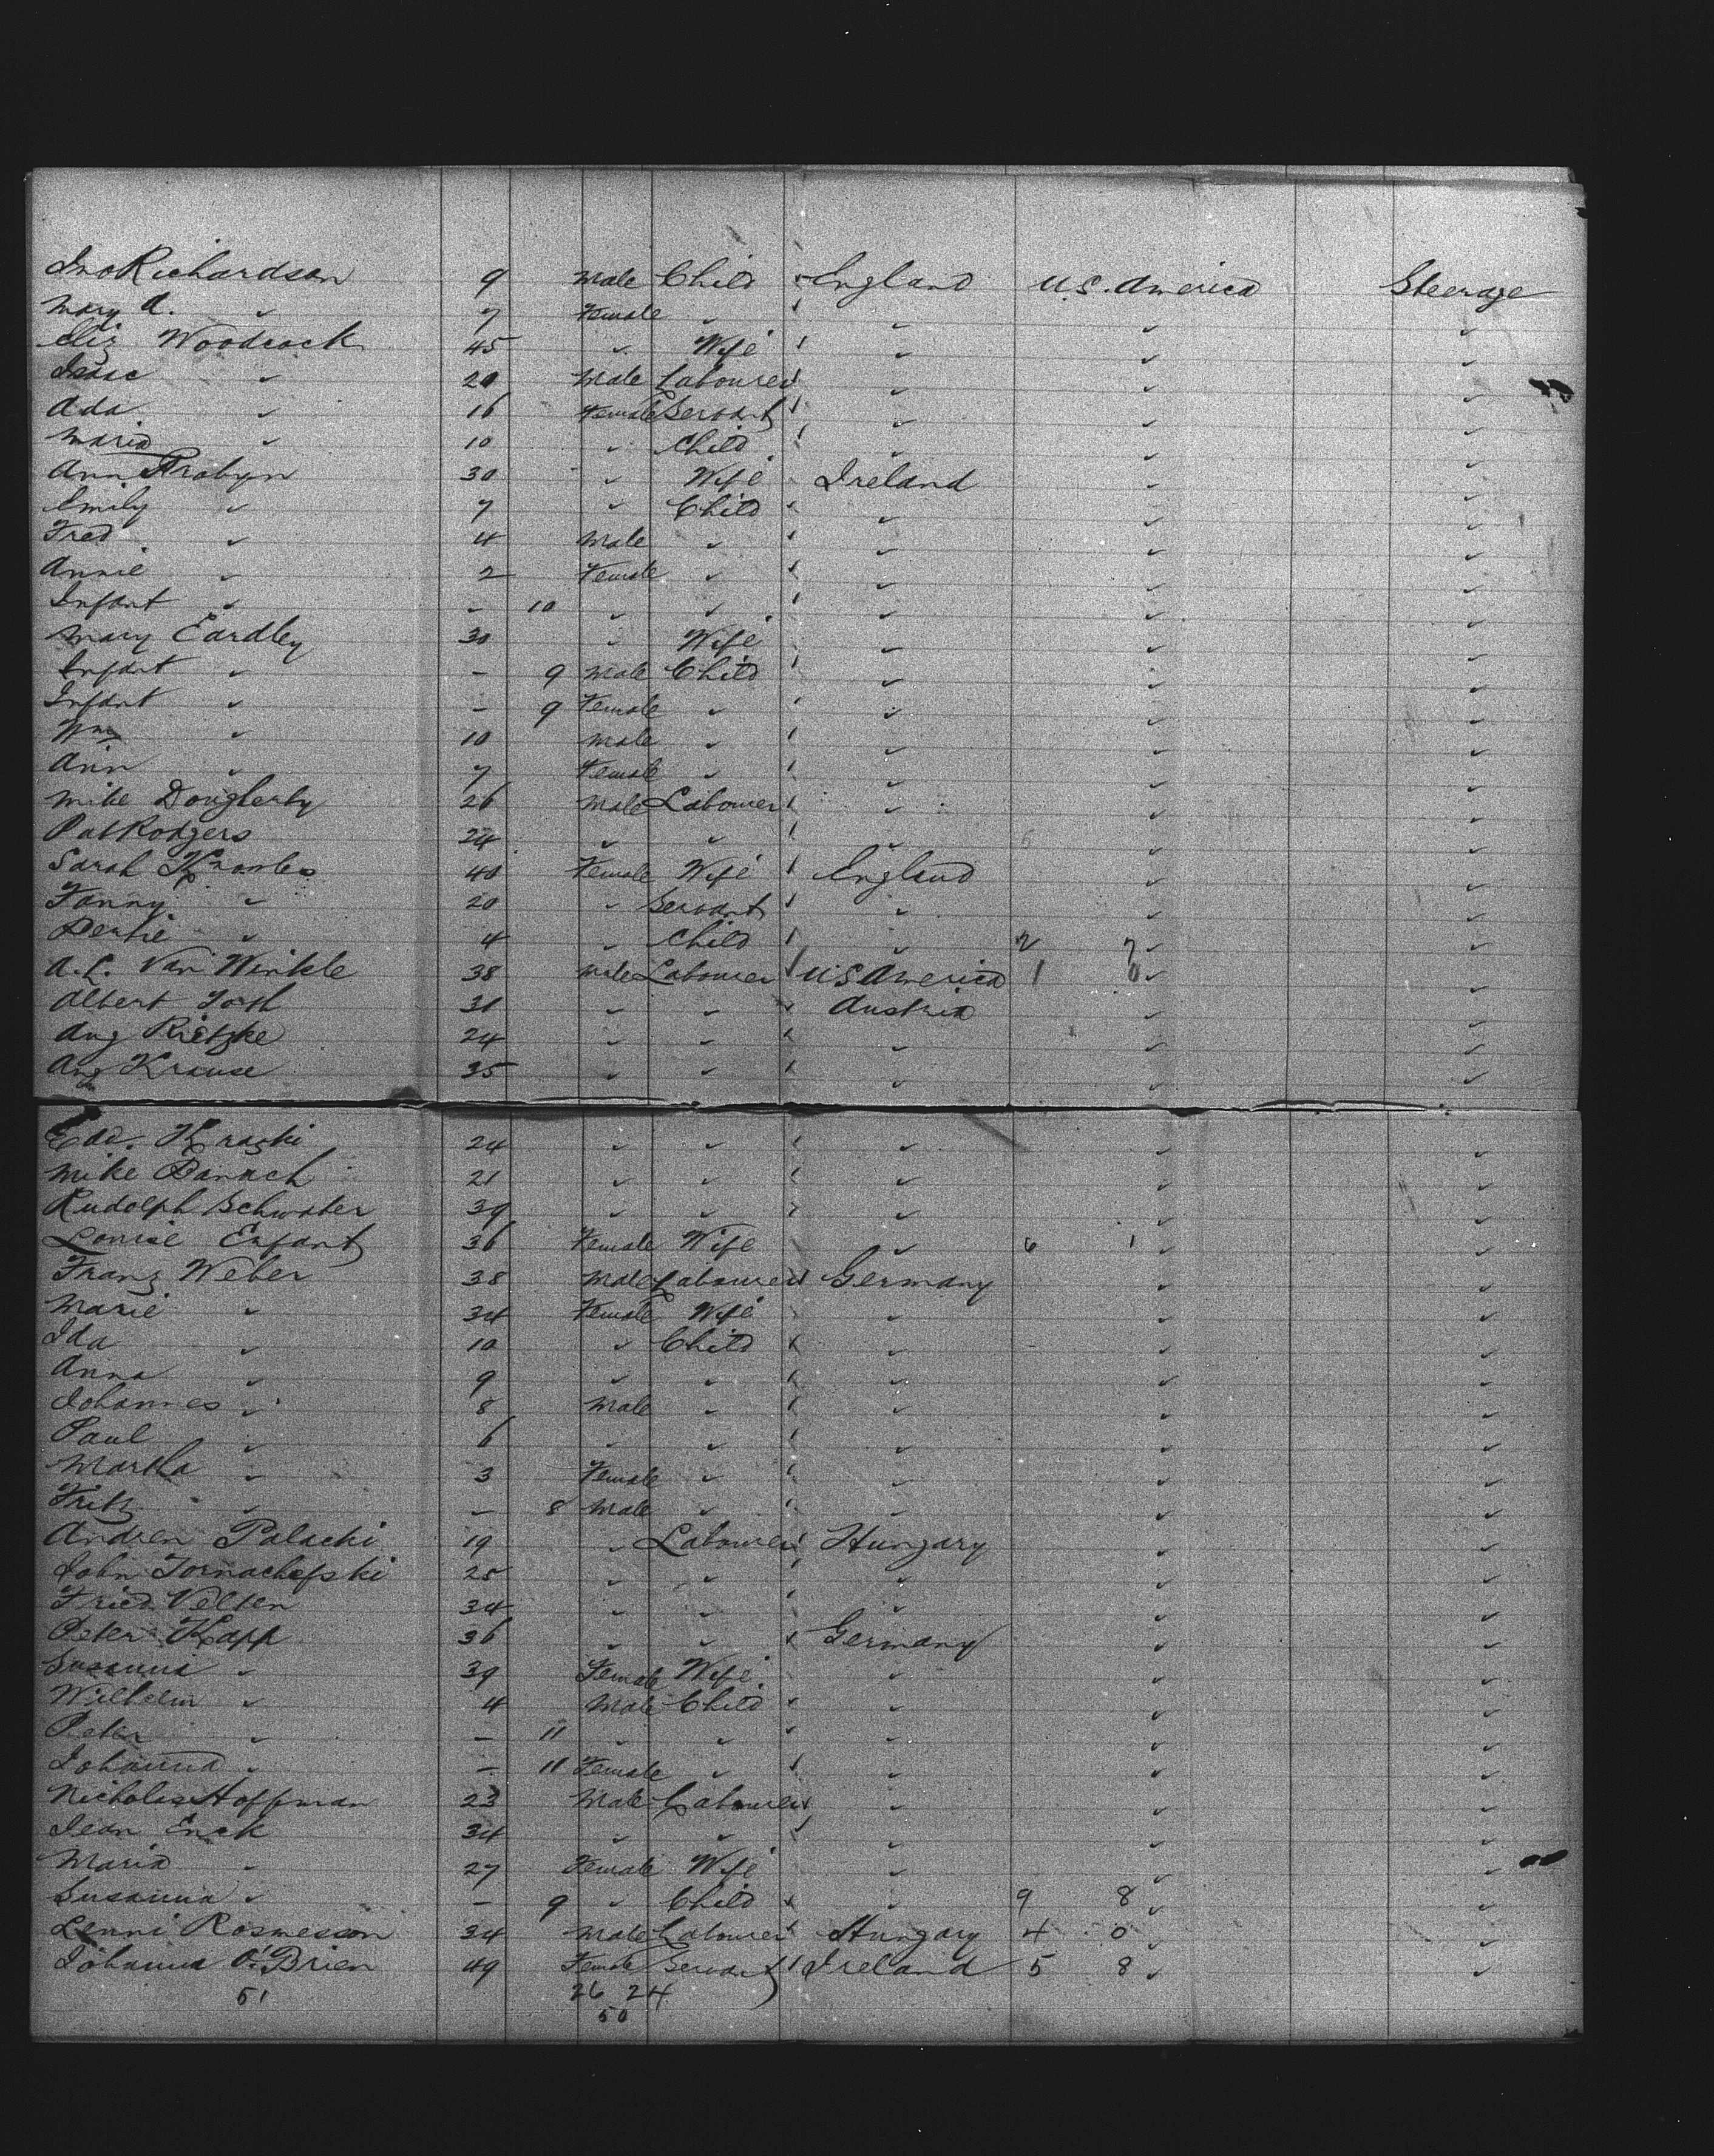 Jno Richardson 9 Male Child England U.S. America Steerage
Mary A. " 7 Female " " " "
Eliz Woodcock 45 " Wife " " "
Isaac " 20 Male Labourer " " "
Ada " 16 Female Servant " " "
Maria " 10 " Child " " "
Ann Probyn 30 " Wife Ireland " "
Emily " 7 " Child " " "
Fred " 4 Male " " " "
Annie " 2 Female " " " "
Infant " - 10 " " " " "
Mary Eardley 30 " Wife " " "
Infant " - 9 Male Child " " "
Infant " - 9 Female " " " "
Wm " 10 Male " " " "
Ann " 7 Female " " " "
Mike Dougherty 26 Male Labourer " " "
Pat Rodgers 24 " " " " "
Sarah Knowles 40 Female Wife England " "
Fanny " 20 " Servant " " "
" 4 " Child " 2 7 " "
A. L. Van Winkle 38 Male Labourer U.S America 1 0 " "
Albert 31 " " Austria " "
Aug Rietzke 24 " " " " "
Aug Krause 35 " " " " "
Edd. 24 " " " " "
Mike Banach 21 " " " " "
Rudolph Schwater 39 " " " " "
Louise Enfant 36 Female Wife " 6 1 " "
Franz Weber 38 Male Labourer Germany " "
Marie " 34 Female Wife " " "
Ida " 10 " Child " " "
Anna " 9 " " " " "
Johannes " 8 Male " " " "
Paul " 6 " " " " "
Martha " 3 Female " " " "
Fritz " - 8 Male " " " "
Andren Palacki 19 " Labourer Hungary " "
John 25 " " " " "
Fried Velten 34 " " " " "
Peter Kapp 36 " " Germany " "
Susanna " 39 Female Wife " " "
Wilhelm " 4 Male Child " " "
Peter " - 11 " " " " "
Johanna " - 11 Female " " " "
Nicholas Hoffman 23 Male Labourer " " "
Jean Enck 34 " " " " "
Maria " 27 Female Wife " " "
Susanna " - 9 " Child " 9 8 " "
34 Male Labourer Hungary 4 0 " "
Johanna O'Brien 49 Female Servant Ireland 5 8 " "
51 26 24
50